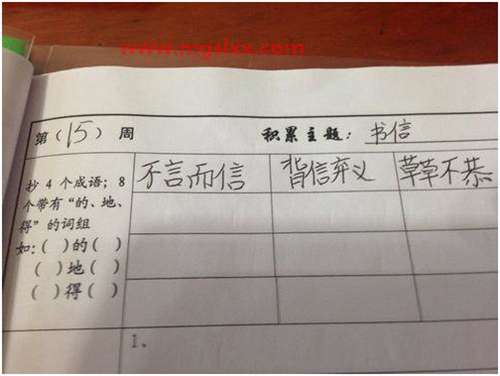 第（15）周 积累主题：书信
抄 4 个成语；8 不言而信 背信弃义 草草不恭
个带有“的、地、
得”的词组
如：（ ）的（ ）
（ ）地（ ）
（ ）得（ ）
1、